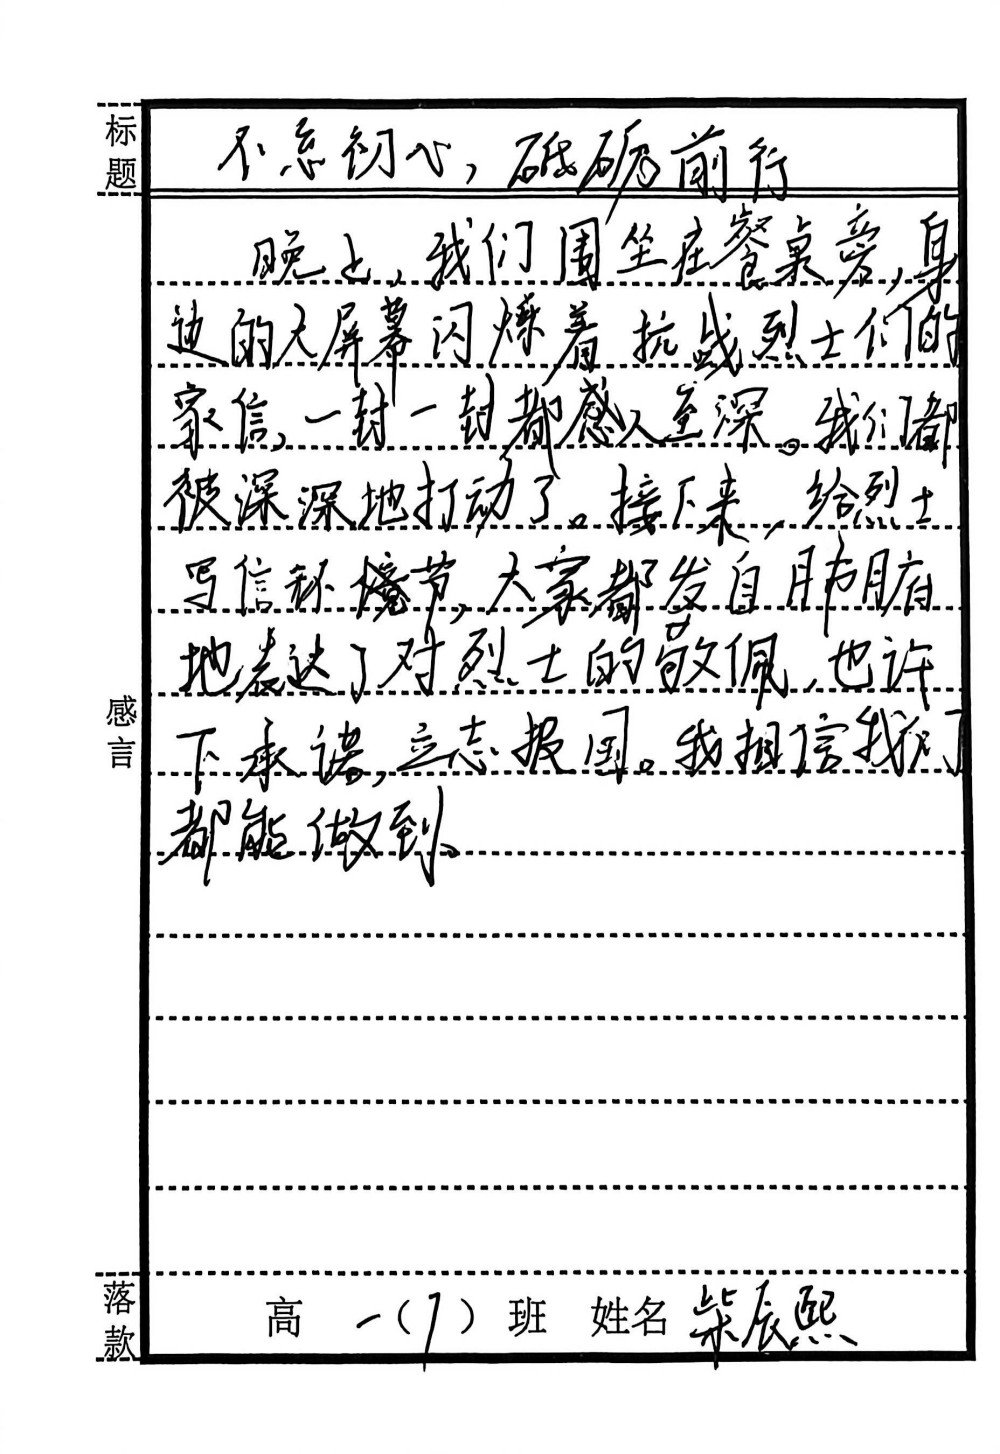 标题
不忘初心，砥砺前行
晚上，我们围坐在餐桌旁，身
边的大屏幕闪烁着抗战烈士们的
家信，一封一封都感人至深。我们都
被深深地打动了。接下来，给烈士
写信环境节，大家都发自肺腑
地表达了对烈士的敬佩，也许
下承诺，立志报国。我相信我们
都能做到。
感言
落款
高一（7）班 姓名 柴辰熙